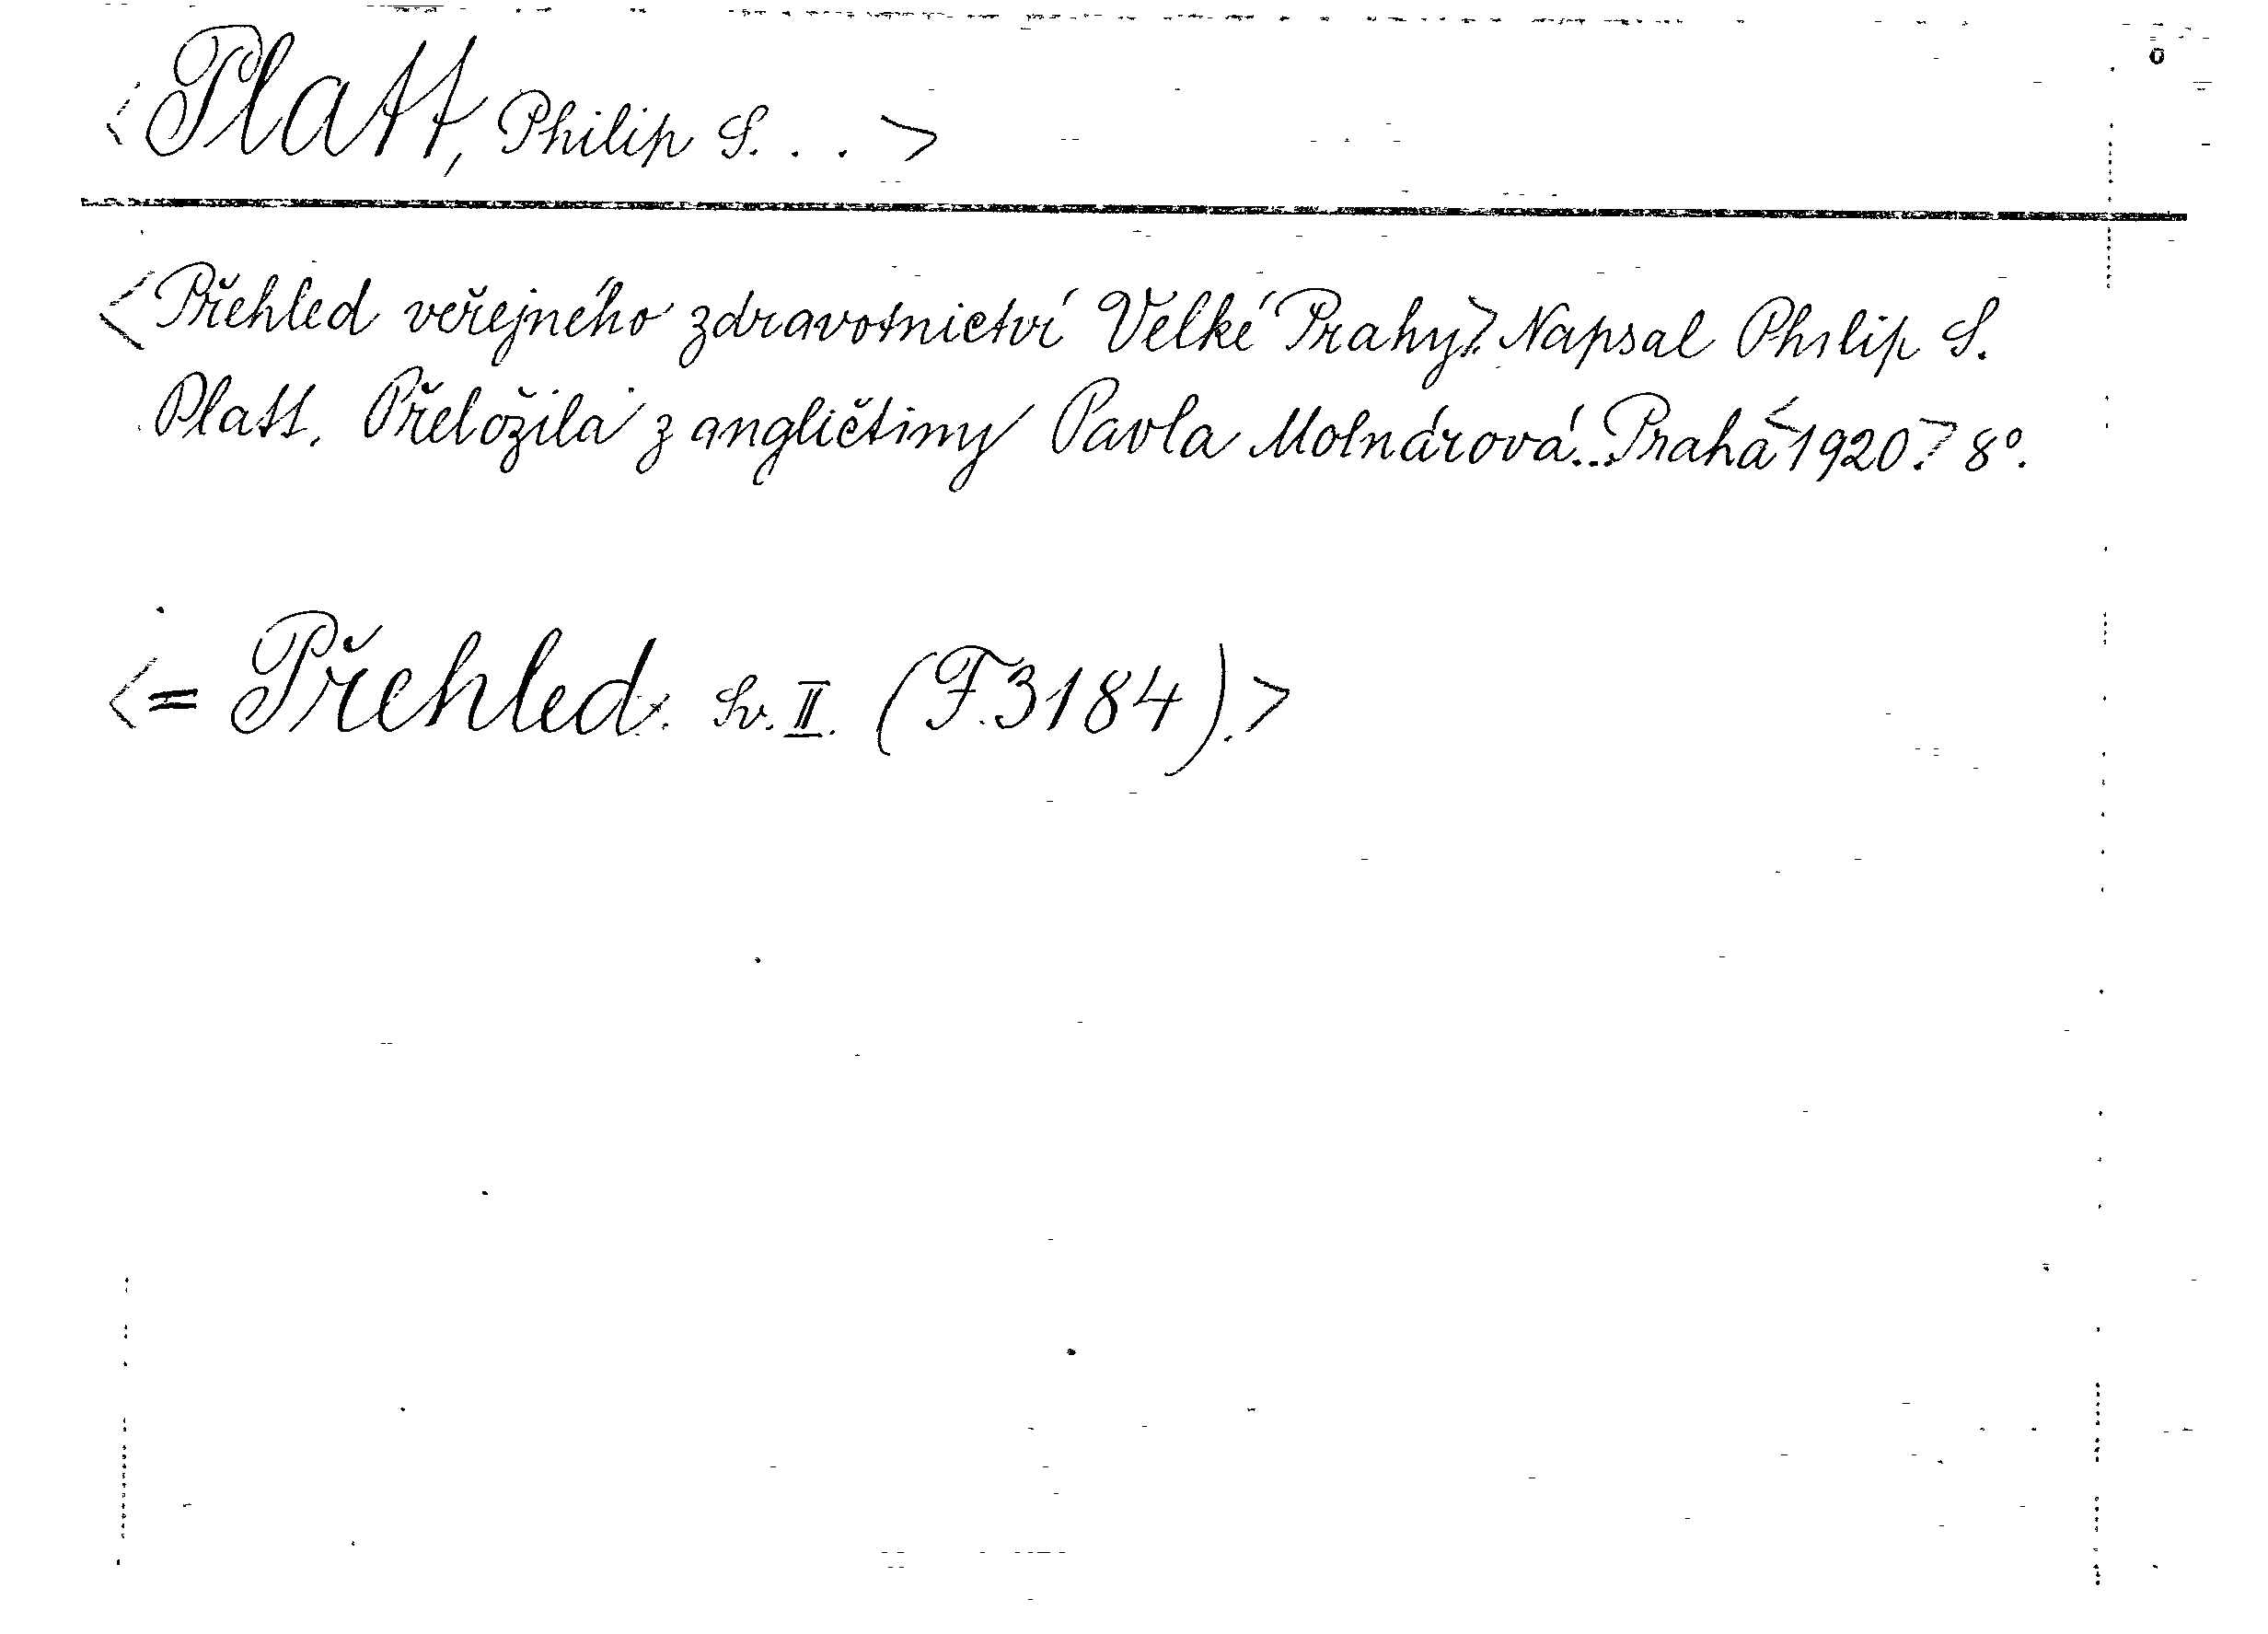 <Platt, Philip S. . . >
<Přehled veřejného zdravotnictví Velké Prahy>. Napsal Philip S.
Platt. Přeložila z angličtiny Pavla Molnárová... Praha <1920.> 8°.
<= Přehled. Sv. II. (F.3184).>